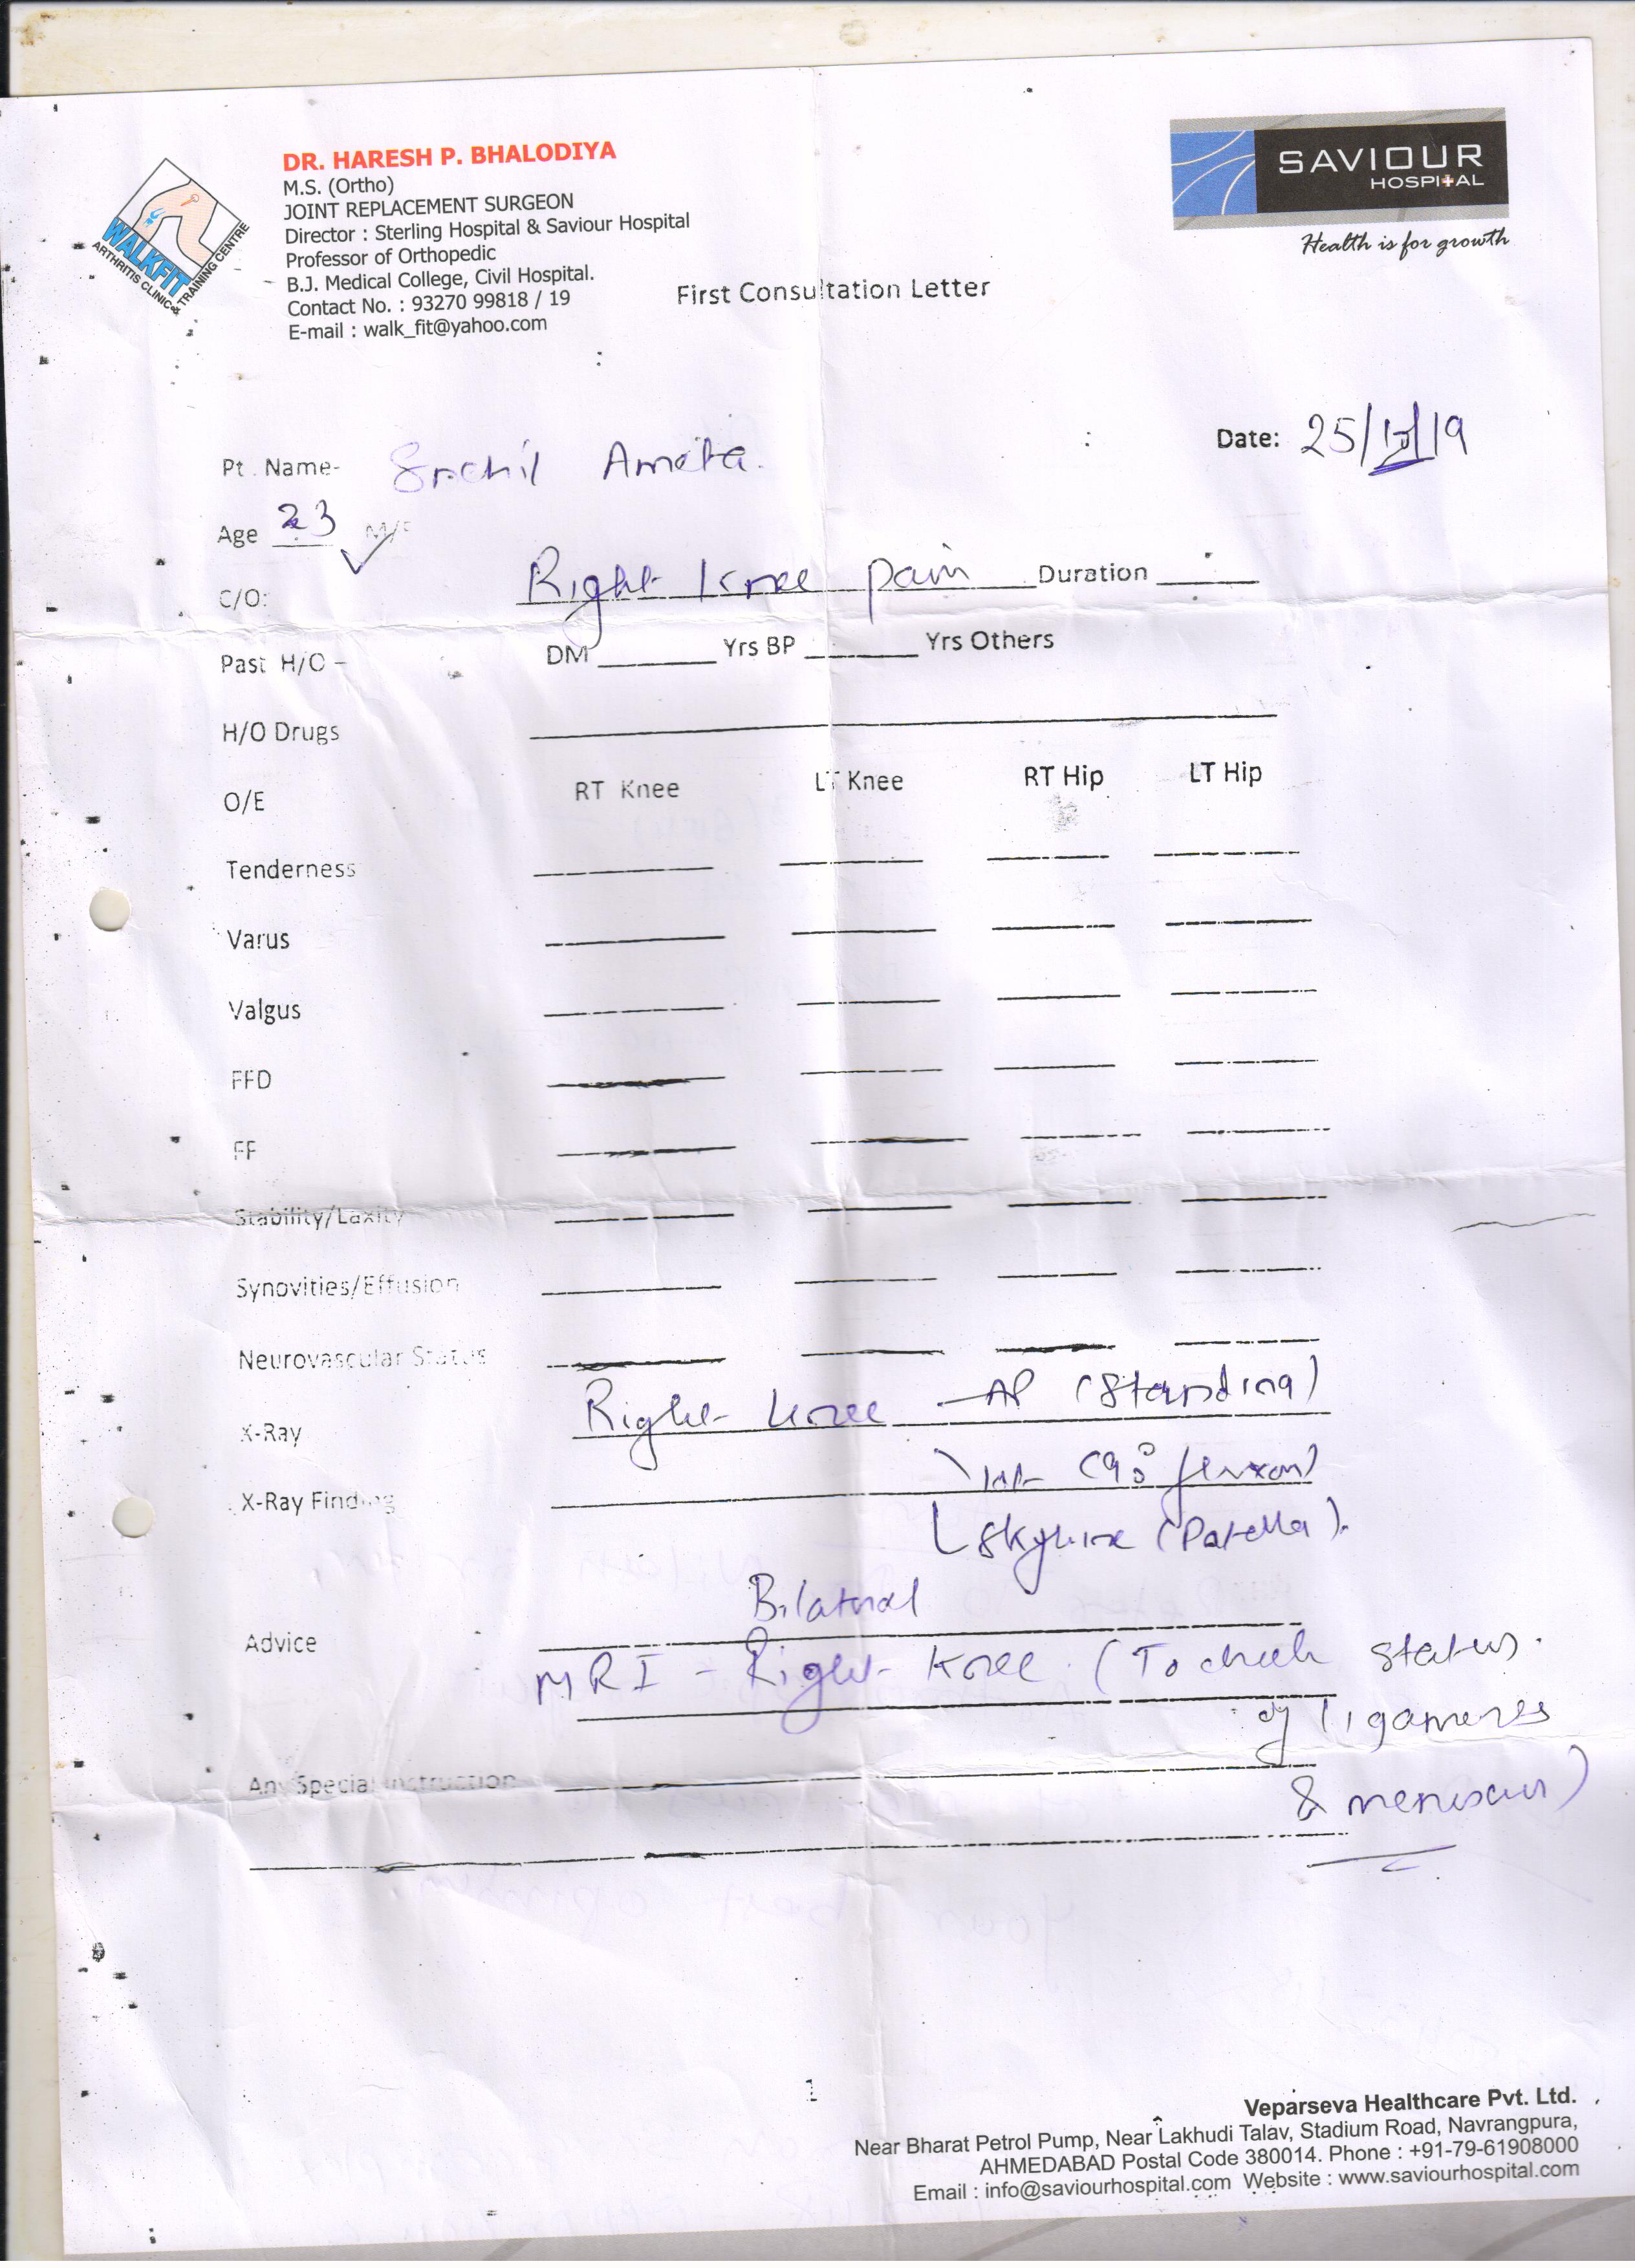 DR. HARESH P. BHALODIYA
M.S. (Ortho)
JOINT REPLACEMENT SURGEON
Director : Sterling Hospital & Saviour Hospital
Professor of Orthopedic
B.J. Medical College, Civil Hospital.
Contact No. : 93270 99818 / 19
E-mail : walk_fit@yahoo.com
WALKFIT
ARTHRITIS CLINIC & TRAINING CENTRE
SAVIOUR
HOSPITAL
Health is for growth
First Consultation Letter
Date: 25/ /19
Pt. Name-
Age 23 M/F
C/O: Right knee pain Duration
Past H/O - DM Yrs BP Yrs Others
H/O Drugs
O/E RT Knee LT Knee RT Hip LT Hip
Tenderness
Varus
Valgus
FFD
FF
Stability/Laxity
Synovities/Effusion
Neurovascular Status
X-Ray Right knee AP (Standing)
X-Ray Finding (90° flexion)
Skyline (Patella).
Bilateral
Advice
MRI - Right Knee (To check status
of ligaments
Any Special Instruction
& meniscus)
1
Veparseva Healthcare Pvt. Ltd.
Near Bharat Petrol Pump, Near Lakhudi Talav, Stadium Road, Navrangpura,
AHMEDABAD Postal Code 380014. Phone : +91-79-61908000
Email : info@saviourhospital.com Website : www.saviourhospital.com